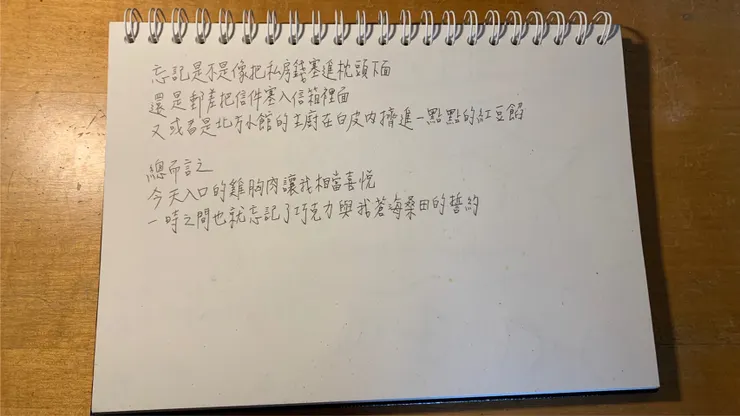 忘記是不是像把私房錢塞進枕頭下面
還是郵差把信件塞入信箱裡面
又或者是北方小館的主廚在白皮內擠進一點點的紅豆餡
總而言之
今天入口的雞胸肉讓我相當喜悅
一時之間也就忘記了巧克力與我蒼海桑田的誓約